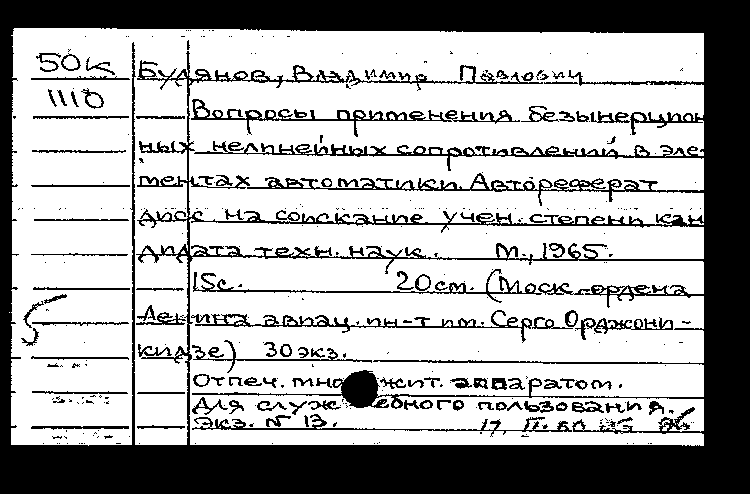 50к Будянов, Владимир Павлович
1110
Вопросы применения безынерцион
ных нелинейных сопротивлений в эле-
ментах автоматики. Автореферат
дисс на соискание учен. степени кан
дидата техн. наук. М., 1965.
15с. 20см. (Моск. ордена
Ленина авиац. ин-т им. Серго Орджони-
кидзе) 30экз.
Отпеч. множит. аппаратом.
Для служебного пользования.
Экз. № 13.